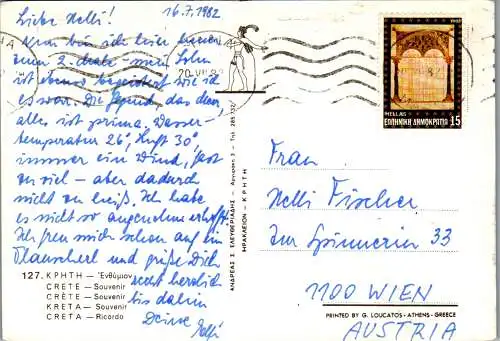 16.7.1982
Liebe Nelli!
Nun bin ich hier
zum 2. Male – mein Sohn
ist ebenso begeistert wie ich
es war. Die Gegend, das
alles ist prima. Wasser-
temperatur 26°, Luft 30°,
immer ein Wind, fast
zu viel – aber dadurch
nicht zu heiß. Ich habe
es nicht so angenehm erhofft.
Ich freu mich schon auf ein
Plauscherl und grüße Dich
recht herzlich
bis dahin
Deine
127. ΚΡΗΤΗ — Ἐνθύμιον
CRETE — Souvenir
CRÈTE — Souvenir
KRETA — Souvenir
CRETA — Ricordo
ΑΝΔΡΕΑΣ Σ. ΕΛΕΥΘΕΡΙΑΔΗΣ
ΗΡΑΚΛΕΙΟΝ - ΚΡΗΤΗ
20 VII 82
HELLAS
ΕΛΛΗΝΙΚΗ ΔΗΜΟΚΡΑΤΙΑ 15
Frau
Nelli Fischer
Zur Spinnerin 33
1100 WIEN
PRINTED BY G. LOUCATOS - ATHENS - GREECE
AUSTRIA